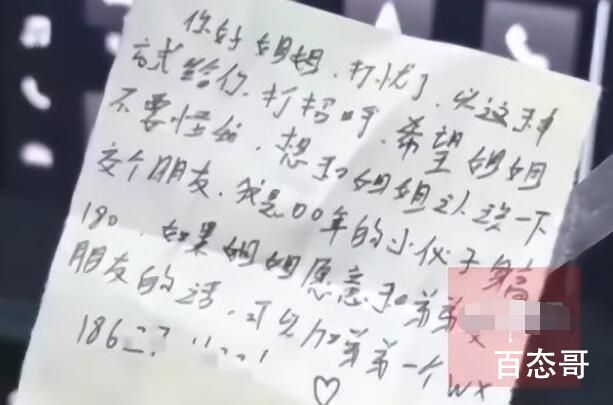 你好姐姐,打忧了,以这种
方式给你打招呼,希望姐姐
不要怪的,想和姐姐认识一下
交个朋友,我是00年的小伙子身高
180,如果姐姐愿意和弟弟
朋友的话,可以加弟弟一个wx
186
♡
百态哥